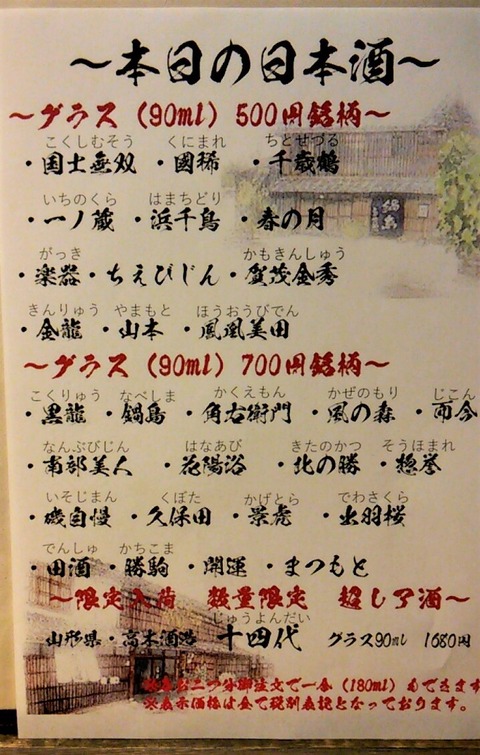 ～本日の日本酒～
～グラス（90ml）500円銘柄～
こくしむそう くにまれ ちとせづる
・国士無双 ・國稀 ・千歳鶴
いちのくら はまちどり
・一ノ蔵 ・浜千鳥 ・春の月
がっき かもきんしゅう
・楽器 ・ちえびじん ・賀茂金秀
きんりゅう やまもと ほうおうびでん
・金龍 ・山本 ・鳳凰美田
～グラス（90ml）700円銘柄～
こくりゅう なべしま かくえもん かぜのもり じこん
・黒龍 ・鍋島 ・角右衛門 ・風の森 ・而今
なんぶびじん はなあび きたのかつ そうほまれ
・南部美人 ・花陽浴 ・北の勝 ・惣誉
いそじまん くぼた かげとら でわさくら
・磯自慢 ・久保田 ・景虎 ・出羽桜
でんしゅ かちこま
・田酒 ・勝駒 ・開運 ・まつもと
～限定入荷 数量限定 超レア酒～
じゅうよんだい
山形県・高木酒造 十四代 グラス90ml 1680円
お二つ分御注文で一合（180ml）もできます
※表示価格は全て税別表記となっております。